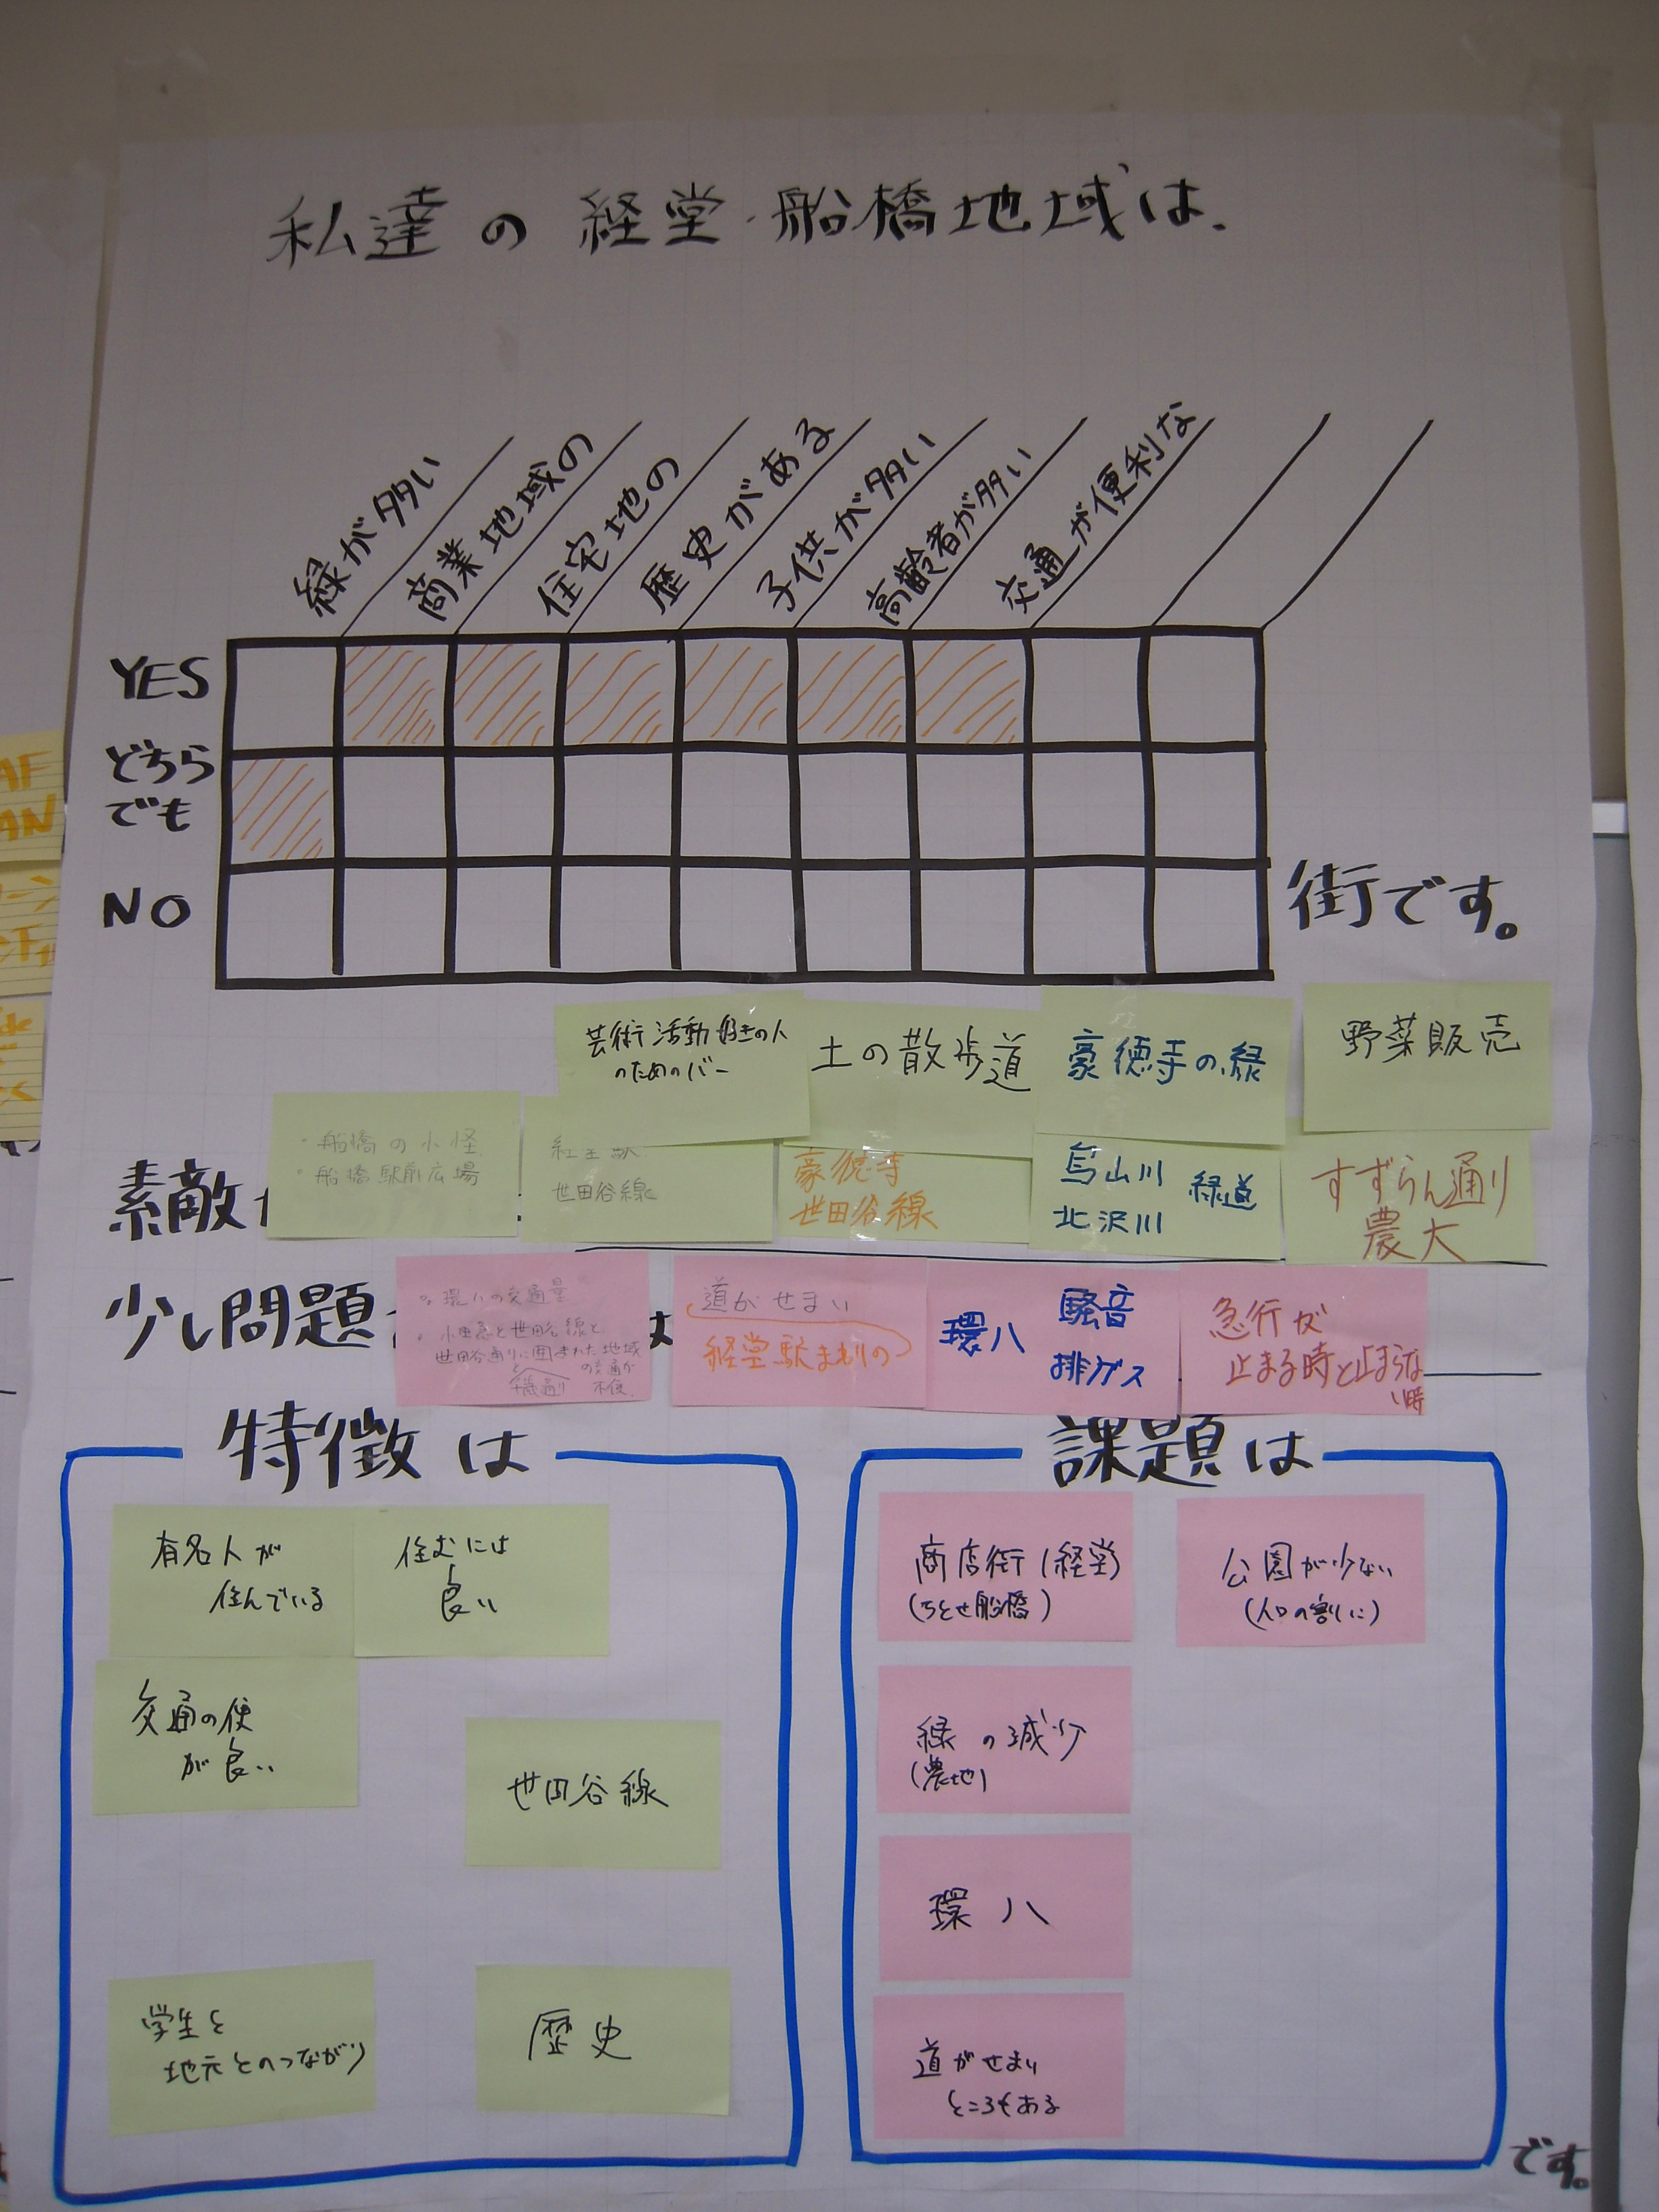 私達の経堂・船橋地域は、
緑が多い
商業地域の
住宅地の
歴史がある
子供が多い
高齢者が多い
交通が便利な
YES
どちら
でも
NO
街です。
芸術活動好きの人
のためのバー
土の散歩道
豪徳寺の緑
野菜販売
素敵
・船橋の小怪
・船橋駅前広場
経堂駅
世田谷線
豪徳寺
世田谷線
烏山川
北沢川
緑道
すずらん通り
農大
少し問題
は
環八の交通量
小田急と世田谷線と
世田谷通りに囲まれた地域
の交通が
不便
道がせまい
経堂駅まわりの
環八
騒音
排ガス
急行が
止まる時と止まらな
い時
特徴は
有名人が
住んでいる
住むには
良い
交通の便
が良い
世田谷線
学生と
地元とのつながり
歴史
課題は
商店街(経堂)
(ちとせ船橋)
公園が少ない
(人口の割に)
緑の減少
(農地)
環八
道がせまい
ところもある
です。
AF
AN